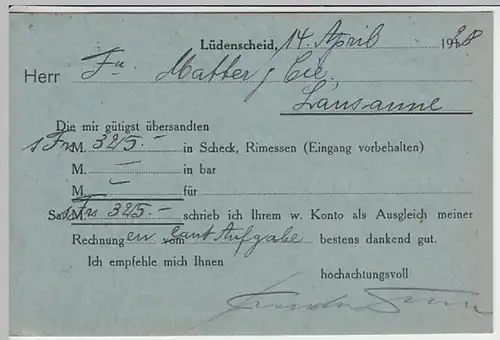 Lüdenscheid, 14. April 1928
Herr Fa Matter / Cie,
Lausanne
Die mir gütigst übersandten
sFrs M. 325.— in Scheck, Rimessen (Eingang vorbehalten)
M. — in bar
M. — für
Sa. sFrs M. 325.— schrieb ich Ihrem w. Konto als Ausgleich meiner
Rechnung en vom laut Aufgabe bestens dankend gut.
Ich empfehle mich Ihnen
hochachtungsvoll